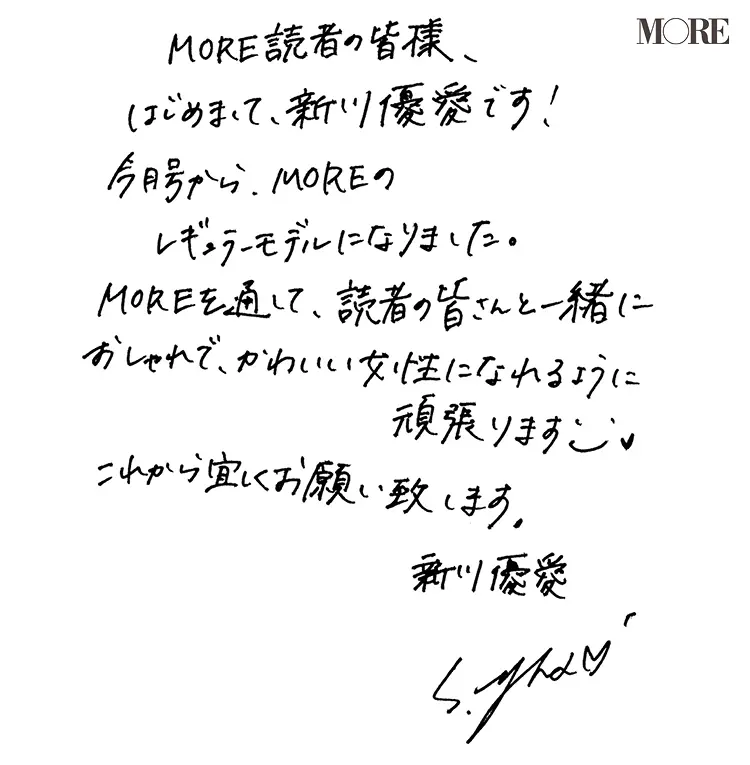 MORE
MORE読者の皆様、
はじめまして、新川優愛です!
今月号から、MOREの
レギュラーモデルになりました。
MOREを通して、読者の皆さんと一緒に
おしゃれで、かわいい女性になれるように
頑張ります
これから宜しくお願い致します。
新川優愛